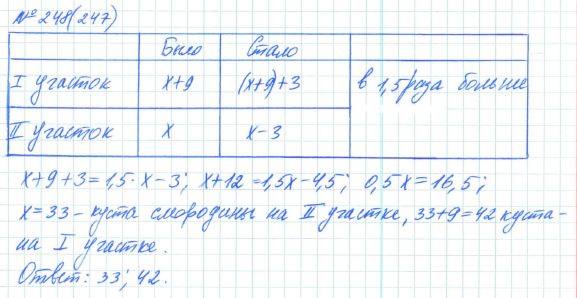 № 248(247)
Было Стало
I участок x+9 (x+9)+3 в 1,5 раза больше
II участок x x-3
x+9+3=1,5·x-3; x+12=1,5x-4,5; 0,5x=16,5;
x=33-куста смородины на II участке, 33+9=42 куста-
на I участке.
Ответ: 33; 42.